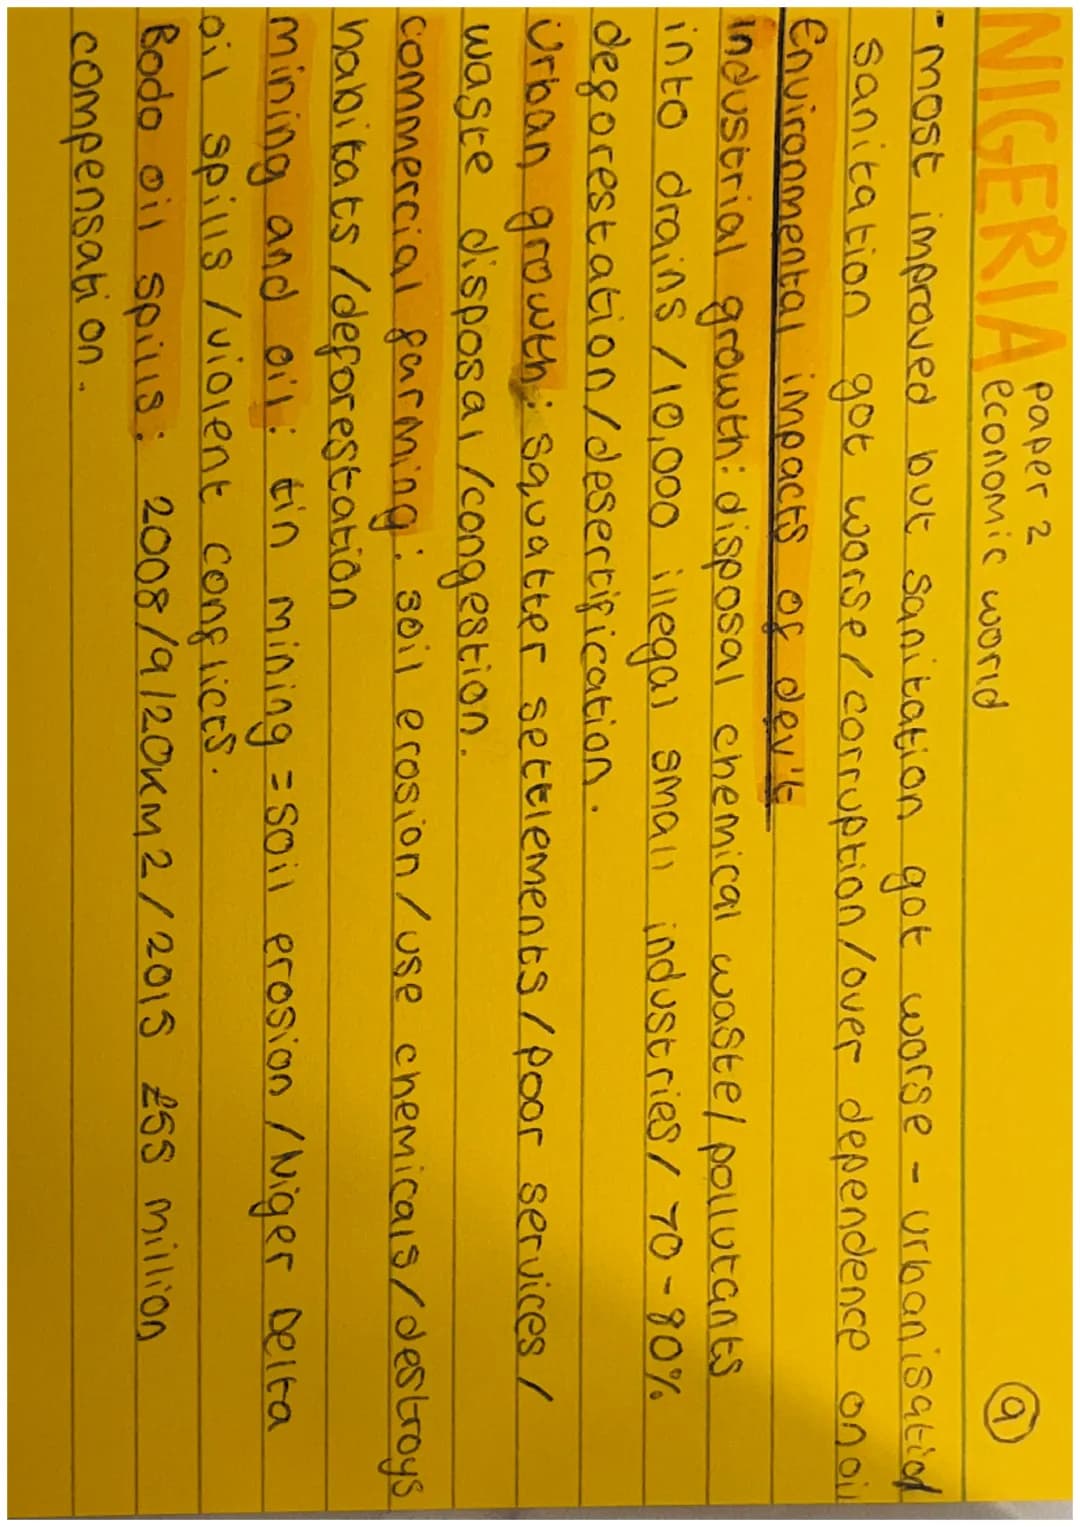 NIGERIA paper 2 economic world 9
- most improved but sanitation got worse - urbanisation
sanitation got worse / corruption / over dependence on oil
Environmental impacts of dev't
industrial growth: disposal chemical waste / pollutants
into drains / 10,000 illegal small industries / 70-80%
deforestation / desertification.
Urban growth: squatter settlements / poor services /
waste disposal / congestion.
commercial farming: soil erosion / use chemicals / destroys
habitats / deforestation
mining and oil: tin mining = soil erosion / Niger Delta
oil spills / violent conflicts.
Bodo oil spills: 2008/9 / 20km2 / 2015 £55 million
compensation.